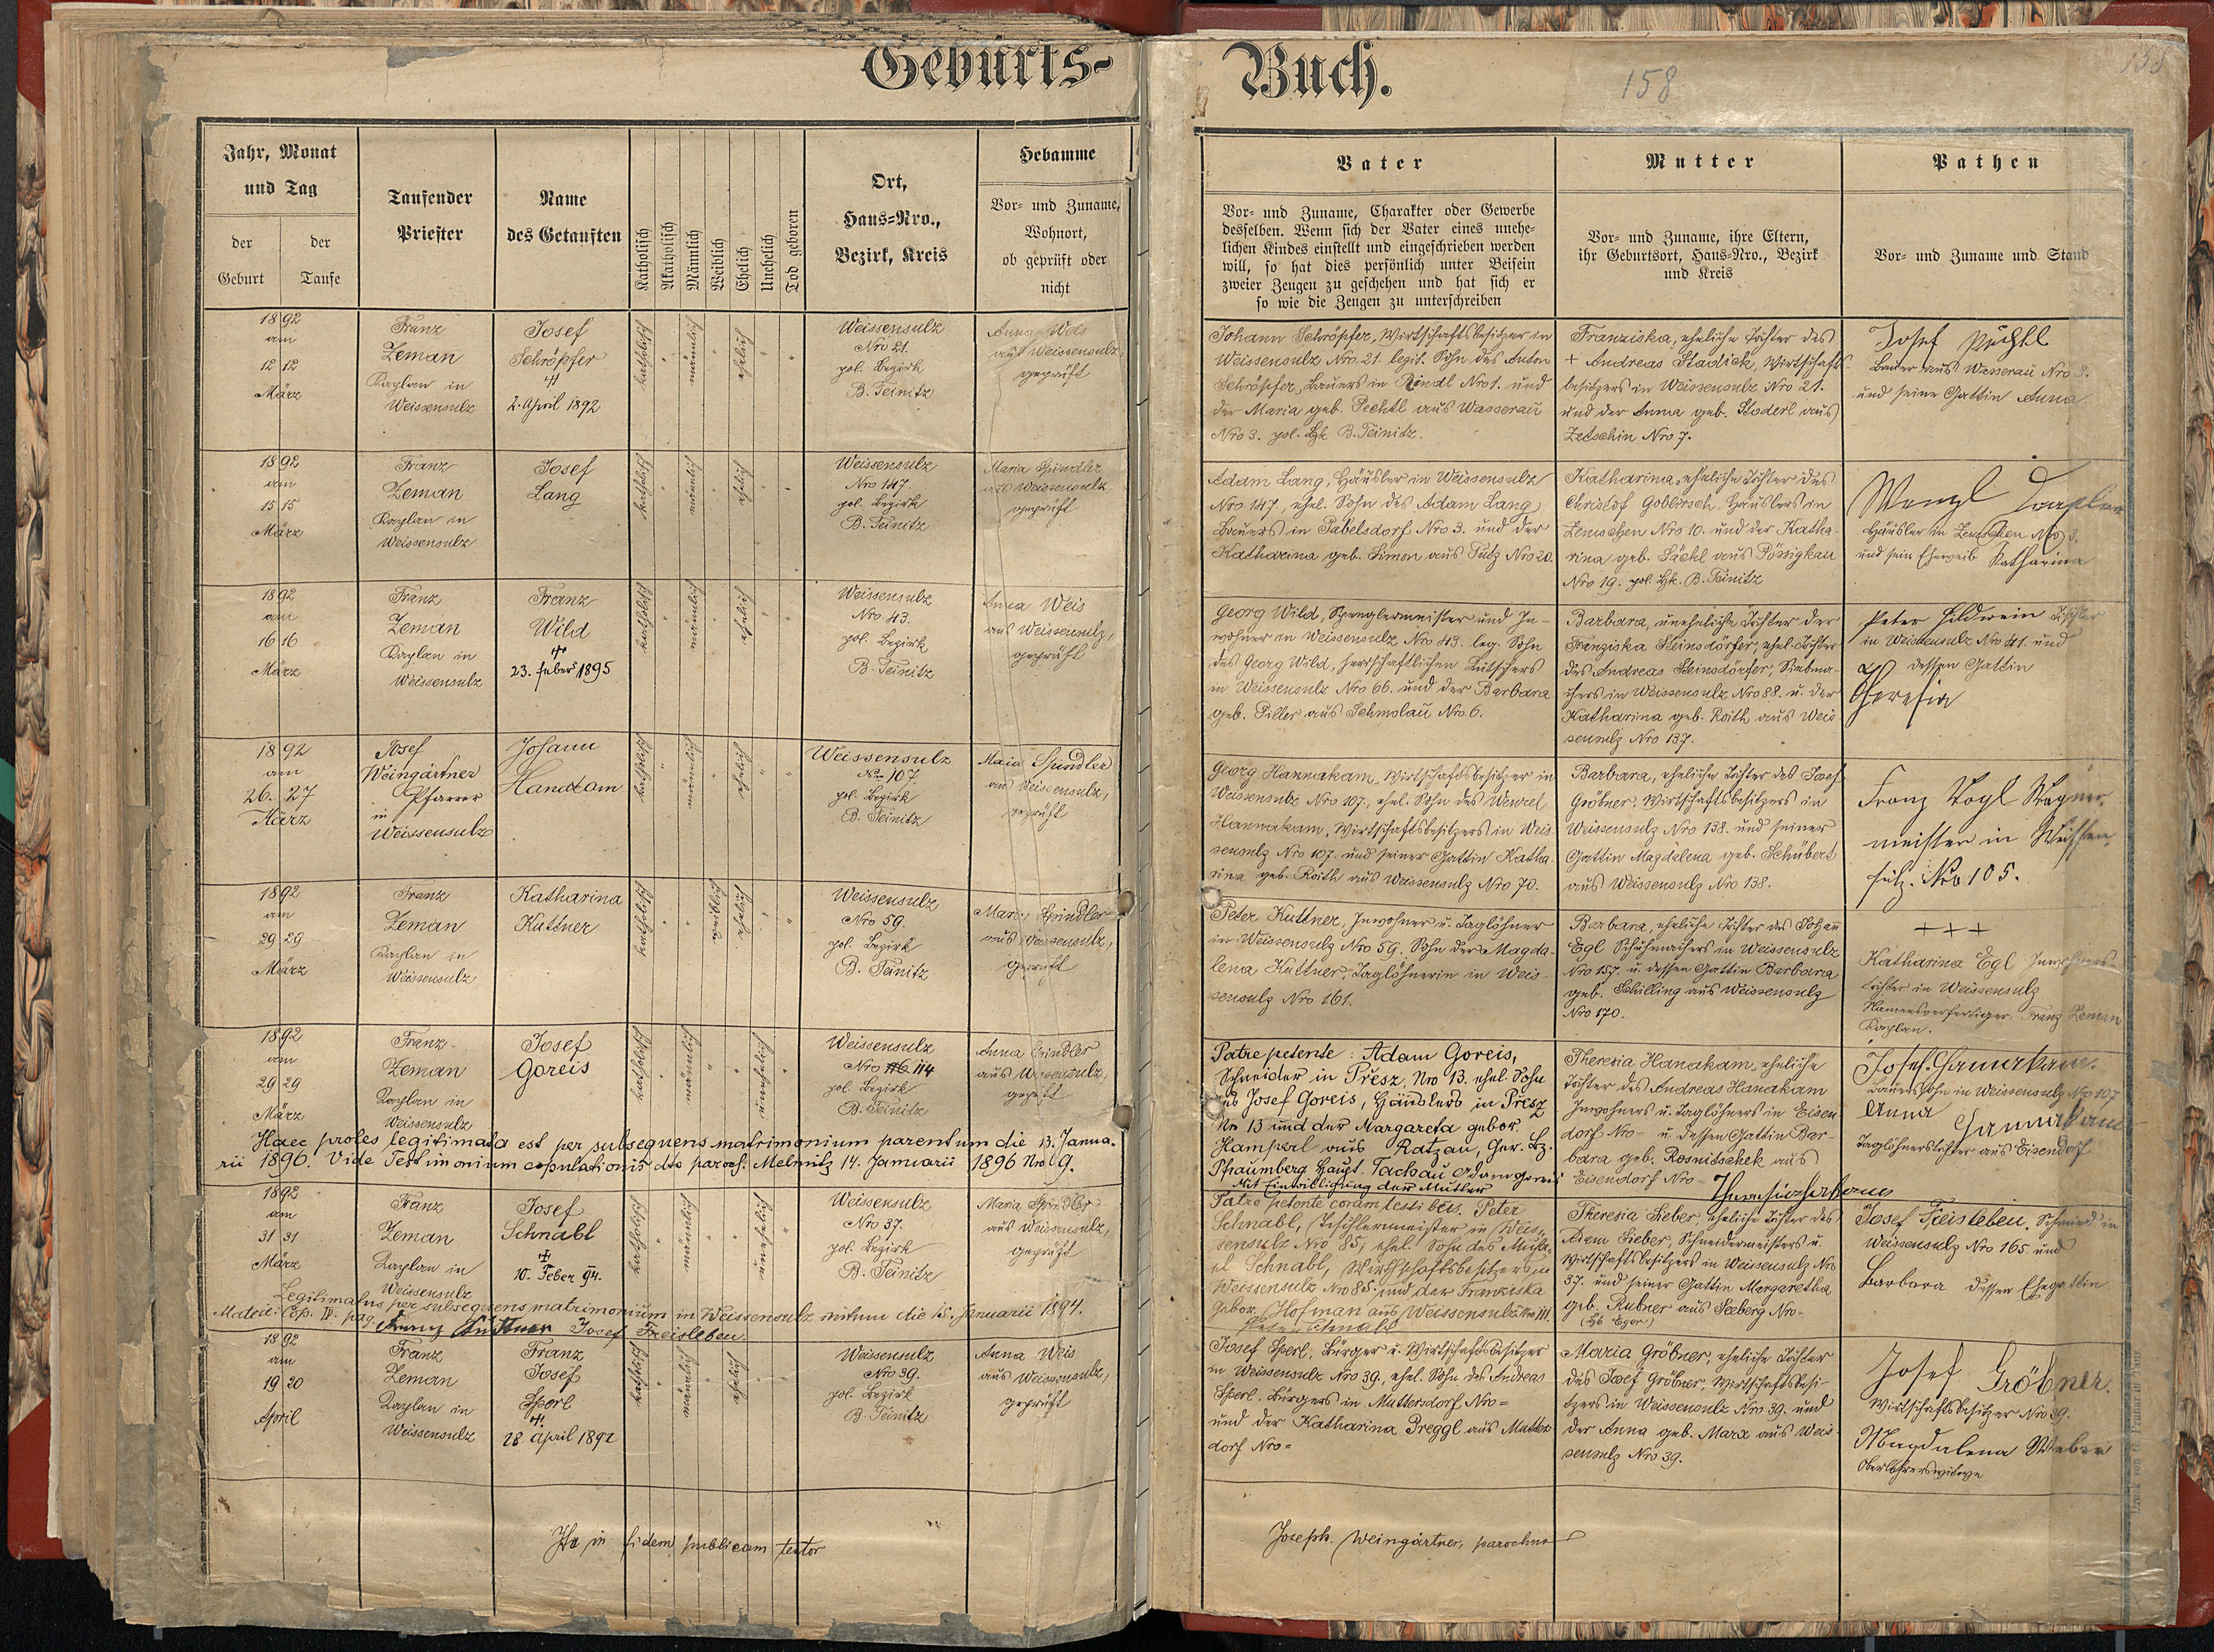 Geburts-
Buch.
158
158
Jahr, Monat
und Tag
der
Geburt
der
Taufe
Taufender
Priester
Name
des Getauften
Katholisch
Akatholisch
Männlich
Weiblich
Ehelich
Unehelich
Tod geboren
Ort,
Haus=Nro.,
Bezirk, Kreis
Hebamme
Vor= und Zuname,
Wohnort,
ob geprüft oder
nicht
Vater
Vor= und Zuname, Charakter oder Gewerbe
desselben. Wenn sich der Vater eines unehe=
lichen Kindes einstellt und eingeschrieben werden
will, so hat dies persönlich unter Beisein
zweier Zeugen zu geschehen und hat sich er
so wie die Zeugen zu unterschreiben
Mutter
Vor= und Zuname, ihre Eltern,
ihr Geburtsort, Haus=Nro., Bezirk
und Kreis
Pathen
Vor= und Zuname und Stand
1892
am
12 12
März
Franz
Zeman
Kaplan in
Weissensulz
Josef
Schröpfer
2. April 1892
katholisch
männlich
ehelich
Weissensulz
Nro 21.
pol. Bezirk
B. Teinitz
Anna Weis
aus Weissensulz,
geprüft
Johann Schröpfer, Wirtschaftsbesitzer in
Weissensulz Nro 21. legit. Sohn des Anton
Schröpfer, Bauers in Rindl Nro 1. und
der Maria geb. Pechtl aus Wasserau
Nro 3. pol. Bzk B. Teinitz.
Franziska, eheliche Tochter des
+ Andreas Stadick, Wirtschafts-
besitzers in Weissensulz Nro 21.
und der Anna geb. Stoderl aus
Zetschin Nro 7.
Josef Pechtl
Bauer aus Wasserau Nro 3.
und seine Gattin Anna
1892
am
15 15
März
Franz
Zeman
Kaplan in
Weissensulz
Josef
Lang
katholisch
männlich
ehelich
Weissensulz
Nro 147.
pol. Bezirk
B. Teinitz
Maria Spindler
aus Weissensulz
geprüft
Adam Lang, Häusler in Weissensulz
Nro 147, ehel. Sohn des Adam Lang
Bauers in Pabelsdorf Nro 3. und der
Katharina geb. Simon aus Putz Nro 20.
Katharina, eheliche Tochter des
Christof Goblirsch. Häuslers in
Zemschen Nro 10. und der Katha-
rina geb. Säckl aus Pössigkau
Nro 19. pol. Bzk. B. Teinitz
Wenzl
Häusler in Zemschen Nro 3.
und sein Eheweib Katharina
1892
am
16 16
März
Franz
Zeman
Kaplan in
Weissensulz
Franz
Wild
23. Feber 1895
katholisch
männlich
ehelich
Weissensulz
Nro 43.
pol. Bezirk
B. Teinitz
Anna Weis
aus Weissensulz,
geprüft
Georg Wild, Spenglermeister und In-
wohner in Weissensulz Nro 43. leg. Sohn
des Georg Wild, herrschaftlichen Kutschers
in Weissensulz Nro 66. und der Barbara
geb. Piller aus Schmolau Nro 6.
Barbara, uneheliche Tochter der
Franziska Steinsdörfer, ehel. Tochter
des Andreas Steinsdörfer, Siebma-
chers in Weissensulz Nro 88. u. der
Katharina geb. Roith aus Weis
sensulz Nro 137.
Peter Hildwein Tischler
in Weissensulz Nro 41. und
dessen Gattin
Theresia
1892
am
26. 27
März
Josef
Weingärtner
Pfarrer
in
Weissensulz
Johann
Hanakam
katholisch
männlich
ehelich
Weissensulz
Nro 107
pol. Bezirk
B. Teinitz
Maria Spindler
aus Weissensulz,
geprüft
Georg Hannakam, Wirtschaftsbesitzer in
Weissensulz Nro 107., ehel. Sohn des Wenzel
Hannakam, Wirtschaftsbesitzers in Weis
sensulz Nro 107. und seiner Gattin Katha
rina geb. Roith aus Weissensulz Nro 70.
Barbara, eheliche Tochter des Josef
Gröbner, Wirtschaftsbesitzers in
Weissensulz Nro 138. und seiner
Gattin Magdelena geb. Schubert
aus Weissensulz Nro 138.
Franz Vogl Wagner-
meister in Weissen-
sulz. Nro 105.
1892
am
29 29
März
Franz
Zeman
Kaplan in
Weissensulz
Katharina
Kuttner
katholisch
weiblich
ehelich
Weissensulz
Nro 59.
pol. Bezirk
B. Teinitz
Maria Spindler
aus Weissensulz,
geprüft
Peter Kuttner, Inwohner u. Taglöhner
in Weissensulz Nro 59. Sohn der Magda-
lena Kuttner, Taglöhnerin in Weis-
sensulz Nro 161.
Barbara, eheliche Tochter des Johann
Egl Schuhmachers in Weissensulz
Nro 157. u. dessen Gattin Barbara
geb. Schilling aus Weissensulz
Nro 170.
+++
Katharina Egl Inwohners-
tochter in Weissensulz
Namensverfertiger Franz Zeman
Kaplan.
1892
am
29 29
März
Franz
Zeman
Kaplan in
Weissensulz
Josef
Goreis
katholisch
männlich
unehelich
Weissensulz
Nro 114
pol. Bezirk
B. Teinitz
Anna Spindler
aus Weissensulz,
geprüft
Patre petente: Adam Goreis,
Schneider in Přesz, Nro 13. ehel. Sohn
des Josef Goreis, Häuslers in Přesz
Nro 13 und der Margareta gebor.
Hamperl aus Ratzau, Ger. Bz.
Pfraumberg Haupt. Tachau Adam Goreis
Mit Einwilligung der Mutter
Theresia Hanakam, eheliche
Tochter des Andreas Hanakam
Inwohners u. Taglöhners in Eisen
dorf Nro- u. dessen Gattin Bar-
bara geb. Rosnitschek aus
Eisendorf Nro-
Josef Hannakam.
Bauerssohn in Weissensulz Nro 107
Anna Hannakam
Taglöhnerstochter aus Eisendorf
Haec proles legitimata est per subsequens matrimonium parentum die 13. Janua-
rii 1896. Vide Testimonium copulationis dto paroch. Melmitz 14. Januarii 1896 Nro 9.
1892
am
31 31
März
Franz
Zeman
Kaplan in
Weissensulz
Josef
Schnabl
10. Feber 94.
katholisch
männlich
unehelich
Weissensulz
Nro 37.
pol. Bezirk
B. Teinitz
Maria Spindler
aus Weissensulz,
geprüft
Patre petente coram testibus. Peter
Schnabl, Tischlermeister in Weis-
sensulz Nro 85, ehel. Sohn des Micha-
el Schnabl, Wirtschaftsbesitzers in
Weissensulz Nro 85. und der Franziska
gebor. Hofman aus Weissensulz Nro 111.
Peter Schnabl
Theresia Lieber, eheliche Tochter des
Adam Lieber, Schneidermeisters u.
Wirtschaftsbesitzers in Weissensulz Nro
37. und seiner Gattin Margaretha
geb. Rubner aus Seeberg Nro-
(Bzk Eger)
Josef Freisleben, Schmied in
Weissensulz Nro 165 und
Barbara dessen Ehegattin
Legitimatus per subsequens matrimonium in Weissensulz initum die 15. Januarii 1894.
Matric. Cop. IV. pag. Franz Kuttner Josef Freisleben.
1892
am
19 20
April
Franz
Zeman
Kaplan in
Weissensulz
Franz
Josef
Sperl
28. April 1892
katholisch
männlich
ehelich
Weissensulz
Nro 39.
pol. Bezirk
B. Teinitz
Anna Weis
aus Weissensulz,
geprüft
Josef Sperl, Bürger u. Wirtschaftsbesitzer
in Weissensulz Nro 39, ehel. Sohn des Andreas
Sperl. Bürgers in Muttersdorf Nro=
und der Katharina Preggl aus Mutters
dorf Nro=
Maria Gröbner, eheliche Tochter
des Josef Gröbner, Wirtschaftsbesi-
tzers in Weissensulz Nro 39. und
der Anna geb. Marx aus Weis
sensulz Nro 39.
Josef Gröbner.
Wirtschaftsbesitzer Nro 39.
Magdalena Weber
Oberlehrerswitwe
Ita in fidem publicam testor
Joseph. Weingärtner, parochus